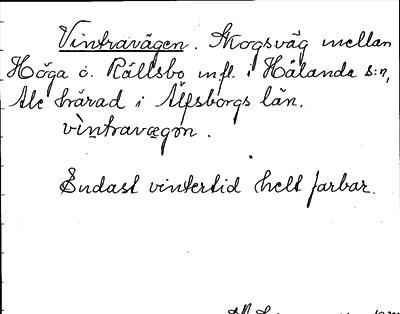 Vintravägen. Skogsväg mellan
Höga o. Rällsbo mfl. i Hålanda s:n,
Ale härad i Älfsborgs län.
vìntravægən.
Endast vintertid helt farbar.